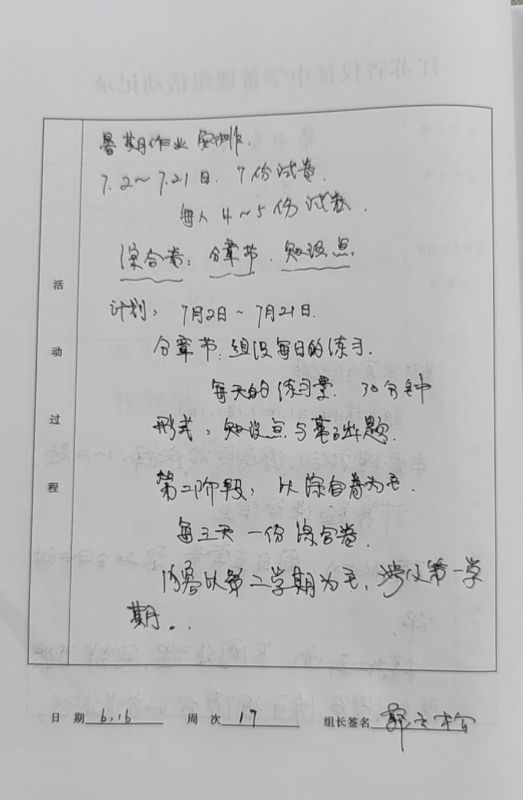 暑期作业安排.
7.2～7.21日. 7份试卷.
每人4～5份试卷.
综合卷; 分章节. 知识点.
计划: 7月2日～7月21日.
分章节, 组没每日的练习.
每天的练习量. 30分钟
形式: 知识点与基础题.
第二阶段, 以综合卷为主.
每三天一份综合卷.
内容以第二学期为主, 涉及第一学
期.
活动过程
日 期 6.16 周 次 17 组长签名